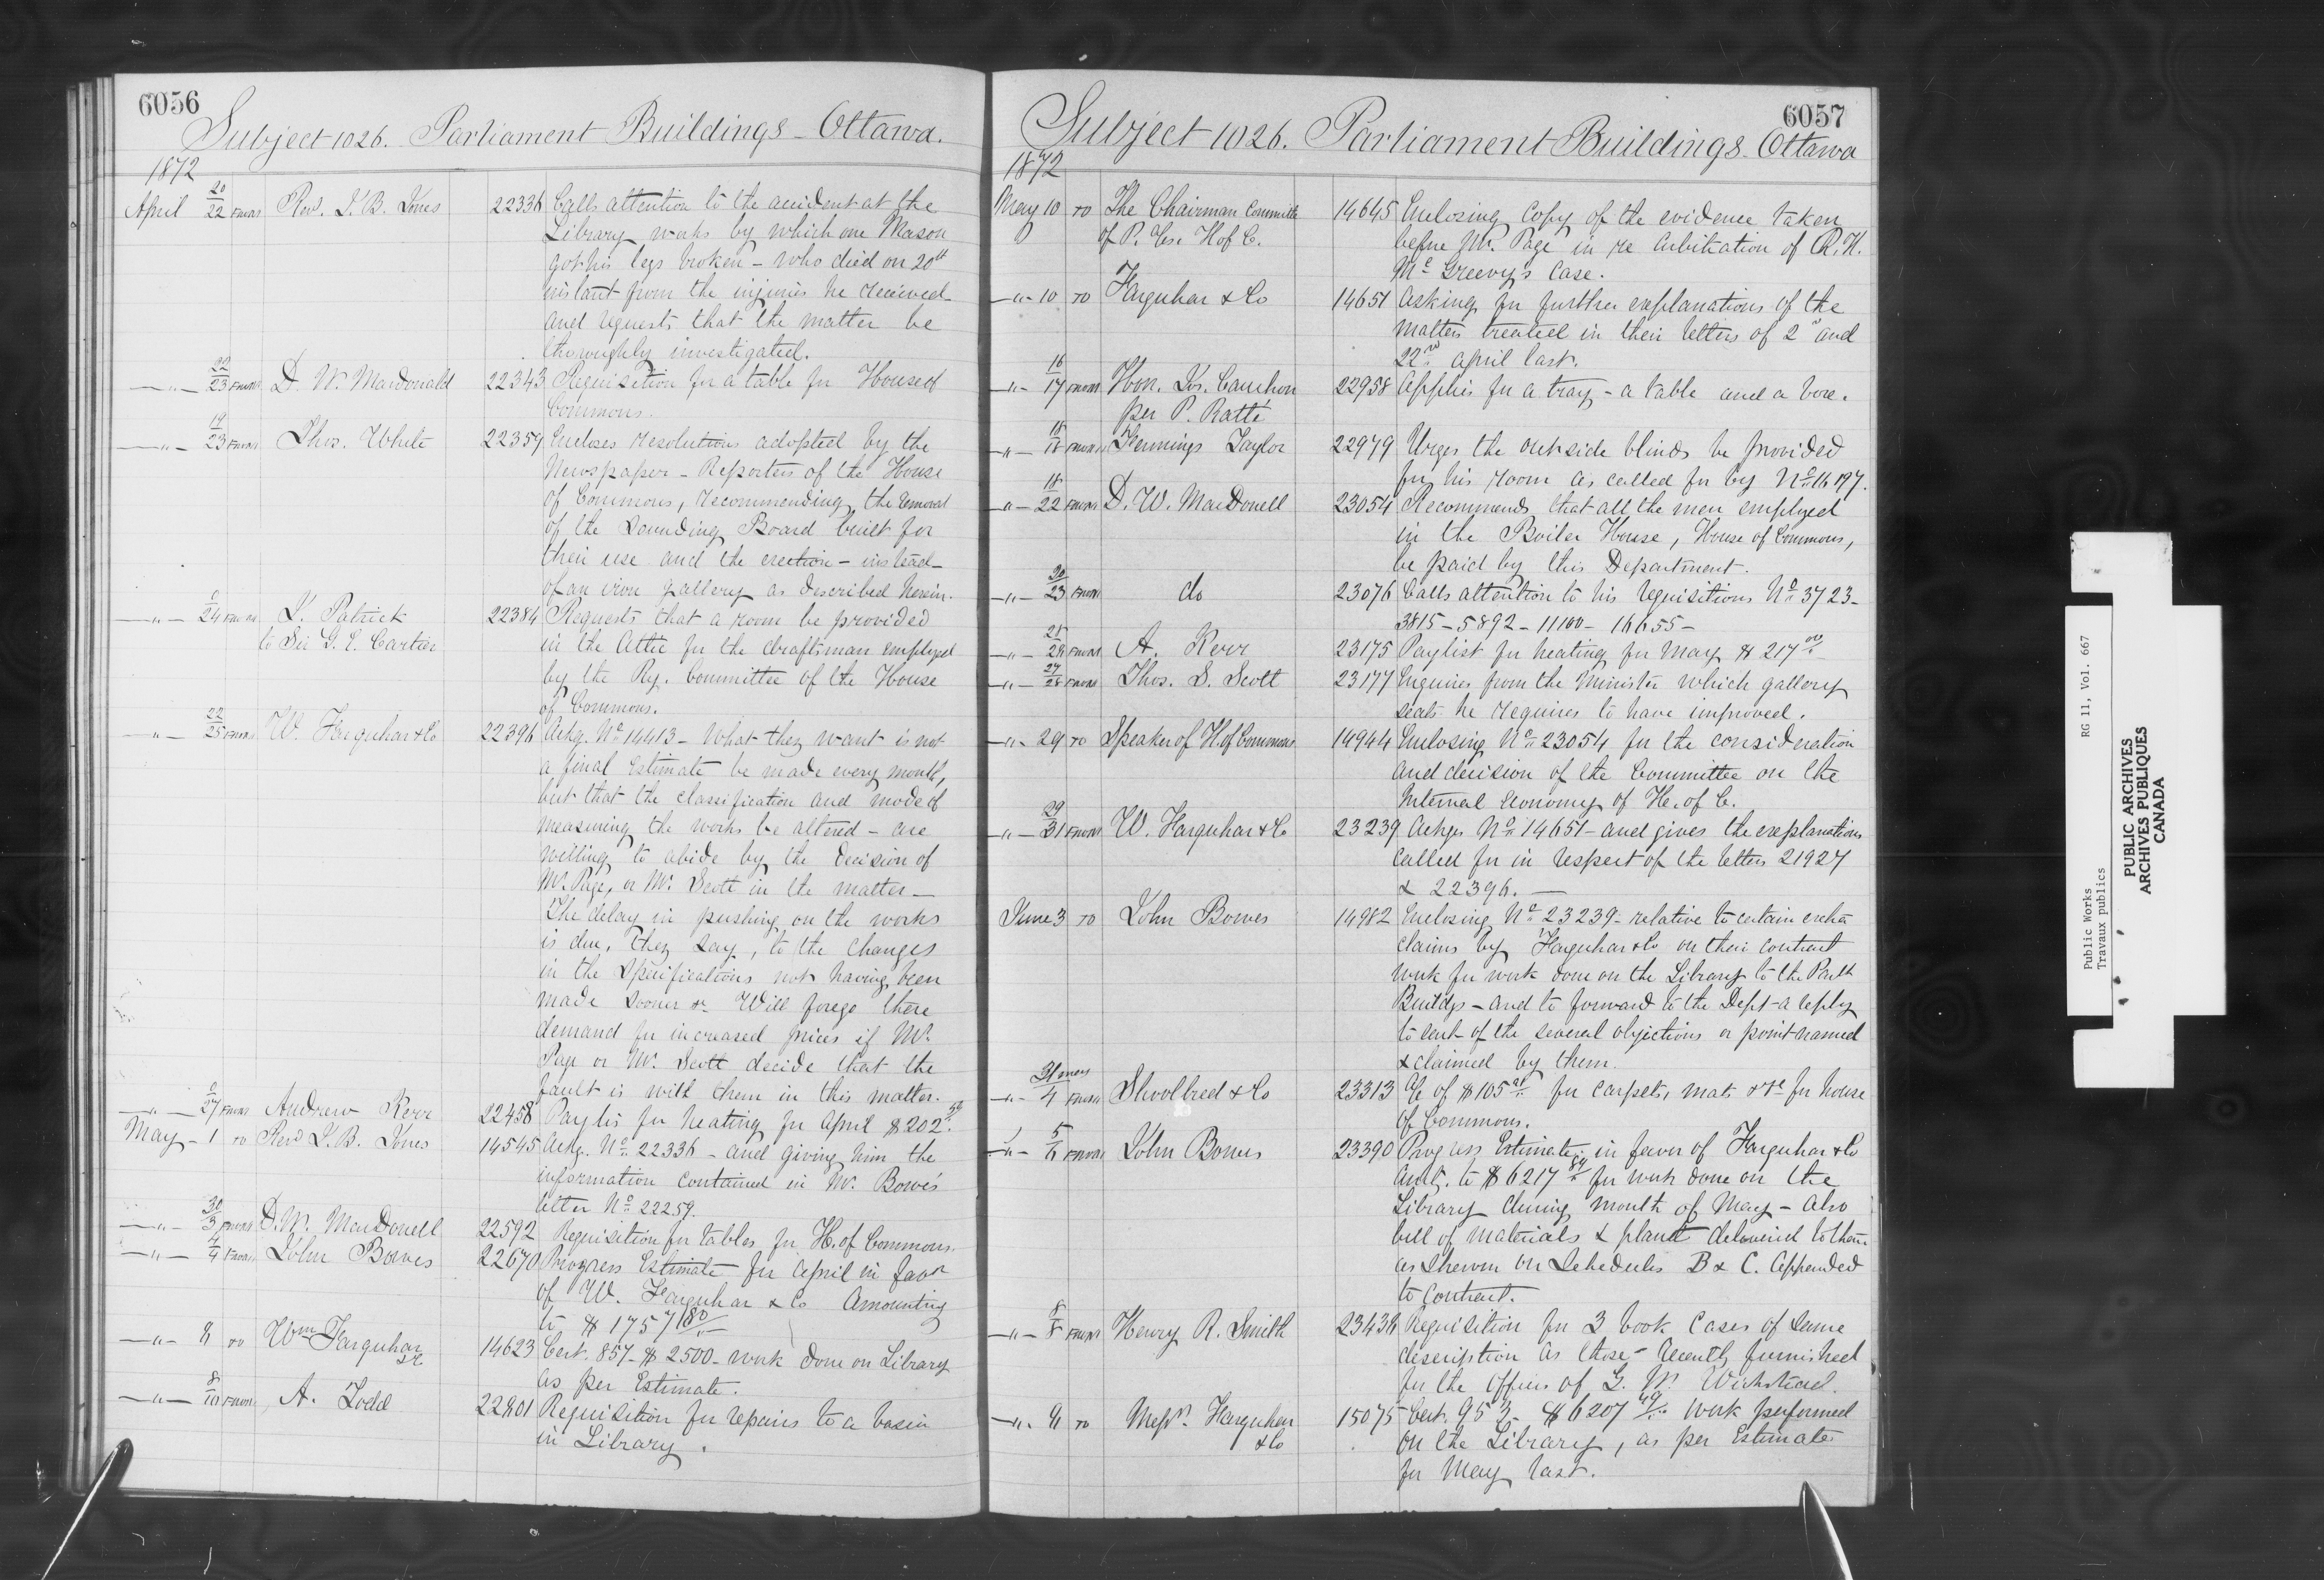 6056
Subject 1026. Parliament Buildings - Ottawa.
1872
April 20/22 FROM Rev. J. B. Jones 22336 Calls attention to the accident at the
Library works by which one Mason
got his legs broken - who died on 20th
instant from the injuries he received -
and requests that the matter be
thoroughly investigated.
—"— 22/23 FROM D. W. Macdonald 22343 Requisition for a table for House of
Commons.
—"— 19/23 FROM Thos. White 22359 Encloses resolutions adopted by the
Newspaper - Reporters of the House
of Commons, recommending the removal
of the Sounding Board built for
their use and the erection - instead -
of an iron gallery as described herein.
—"— 0/24 FROM J. Patrick 22384 Requests that a room be provided
to Sir G. E. Cartier in the Attic for the draftsman employed
by the Ry. Committee of the House
of Commons.
—"— 22/25 FROM W. Farquhar & Co 22396 Ackg. No. 14413 - What they want is not
a final Estimate be made every month,
but that the classification and mode of
measuring the works be altered - are
willing to abide by the decision of
Mr. Page, or Mr. Scott in the matter —
The delay in pushing on the works
is due, they say, to the changes
in the Specifications not having been
made sooner &c. Will forego there
demand for increased prices if Mr.
Page or Mr. Scott decide that the
fault is with them in this matter.
—"— 0/27 FROM Andrew Kerr 22458 Paylis for heating for April $202.50
May - 1 TO Revd J. B. Jones 14545 Ackg. No. 22336 - and giving him the
information contained in Mr. Bowe's
letter No. 22259.
—"— 30/3 FROM D. W. MacDonell 22592 Requisition for tables for H. of Commons.
—"— 4/4 FROM John Bowes 22670 Progress Estimate for April in favor
of W. Farquhar & Co Amounting
to $1757 80/..
—"— 8 TO Wm Farquhar 14623 Cert. 857 - $2500 - work done on Library
&c as per Estimate.
—"— 8/10 FROM A. Todd 22801 Requisition for repairs to a basin
in Library.
6057
Subject 1026. Parliament Buildings - Ottawa
1872
May 10 TO The Chairman Committee 14645 Enclosing Copy of the evidence taken
of P. Ccs. H of C. before Mr. Page in re Arbitration of R. H.
McGreevy's Case.
—"— 10 TO Farquhar & Co 14651 Asking for further explanations of the
matters treated in their letters of 2nd and
22nd April last.
—"— 16/17 FROM Hon. Jos. Cauchon 22958 Applies for a tray - a table and a box.
per P. Ratté
—"— 18 FROM Fennings Taylor 22979 Urges the outside blinds be provided
for his room as called for by No. 16197.
—"— 18/22 FROM D. W. MacDonell 23054 Recommends that all the men employed
in the Boiler House, House of Commons,
be paid by this Department.
—"— 20/23 FROM do 23076 Calls attention to his requisitions No. 3723 -
3815 - 5892 - 11100 - 16655 -
—"— 25/28 FROM A. Kerr 23175 Paylist for heating for May $217.00
—"— 27/28 FROM Thos. S. Scott 23177 Inquires from the Minister which gallery
seats he requires to have improved.
—"— 29 TO Speaker of H. of Commons 14944 Enclosing No. 23054 for the consideration
and decision of the Committee on the
Internal Economy of H. of C.
—"— 29/31 FROM W. Farquhar & Co 23239 Ackgs No. 14651 - and gives the explanations
called for in respect of the letters 21927
& 22396. —
June 3 TO John Bowes 14982 Enclosing No. 23239 - relative to certain extra
claims by Farquhar & Co on their contract
work for work done on the Library to the Parlt
Buildgs - and to forward to the Dept - a reply
to each of the several objections or point named
& claimed by them.
—"— 31 May/4 FROM Shoolbred & Co 23313 A/c of $105 for carpets, mats &c for house
of Commons.
—"— 5/6 FROM John Bowes 23390 Progress Estimate in favor of Farquhar & Co
Amtg. to $6217.84 for work done on the
Library during month of May - Also
bill of materials & plant delivered to them
as shewn on Schedules B & C. Appended
to Contract.
—"— 8/8 FROM Henry R. Smith 23436 Requisition for 3 book cases of same
description as those - recently furnished
for the offices of G. W. Wicksteed.
—"— 9 TO Messrs. Farquhar 15075 Cert. 953 - $6207 49/.. Work performed
& Co on the Library, as per Estimate
for May last.
Public Works RG 11, Vol. 667
Travaux publics
PUBLIC ARCHIVES
ARCHIVES PUBLIQUES
CANADA